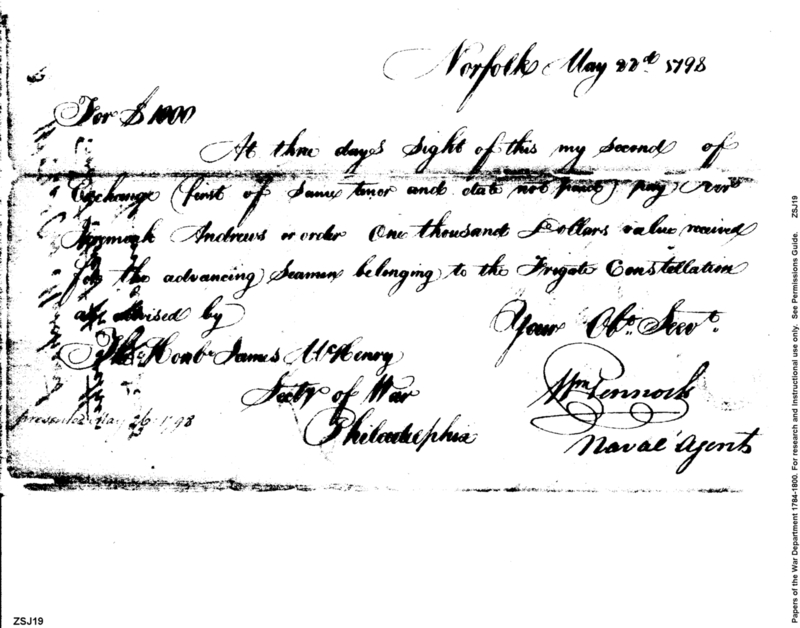 Norfolk May 22d 1798
For $ 1000
At three days Sight of this my second of
Exchange (first of same tenor and date not paid) pay
Andrews or order One thousand Dollars value received
for the advancing Seamen belonging to the Frigate Constellation
as advised by
Your Obt. Servt.
The Honbe James McHenry
Wm Pennock
Secty of War
presented May 26 1798
Philadelphia
Naval Agent
Papers of the War Department 1784-1800. For research and instructional use only. See Permissions Guide. ZSJ19
ZSJ19